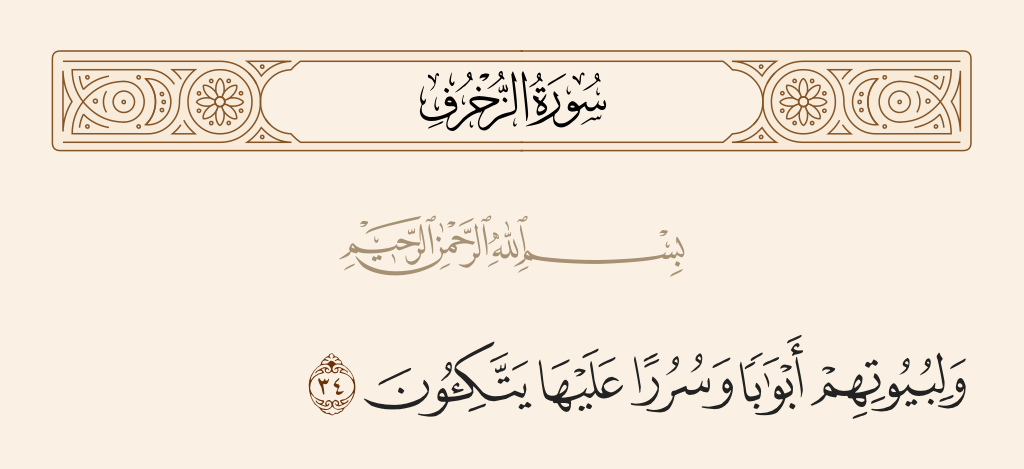 سُورَةُ الزُّخْرُفِ
بِسْمِ ٱللَّهِ ٱلرَّحْمَٰنِ ٱلرَّحِيمِ
وَلِبُيُوتِهِمْ أَبْوَٰبًا وَسُرُرًا عَلَيْهَا يَتَّكِـُٔونَ ٣٤